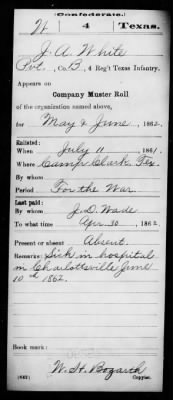 Confederate.
W 4 Texas.
J. A. White
Pvt., Co. B, 4 Reg't Texas Infantry.
Appears on
Company Muster Roll
of the organization named above,
for May & June, 1862.
Enlisted:
When July 11, 1861.
Where Camp Clark, Tex.
By whom
Period For the War
Last paid:
By whom J. D. Wade
To what time Apr. 30, 1862
Present or absent Absent.
Remarks: Sick in hospital
in Charlottsville June
10th 1862.
Book mark:
W. H. Bogarth
(642) Copyist.